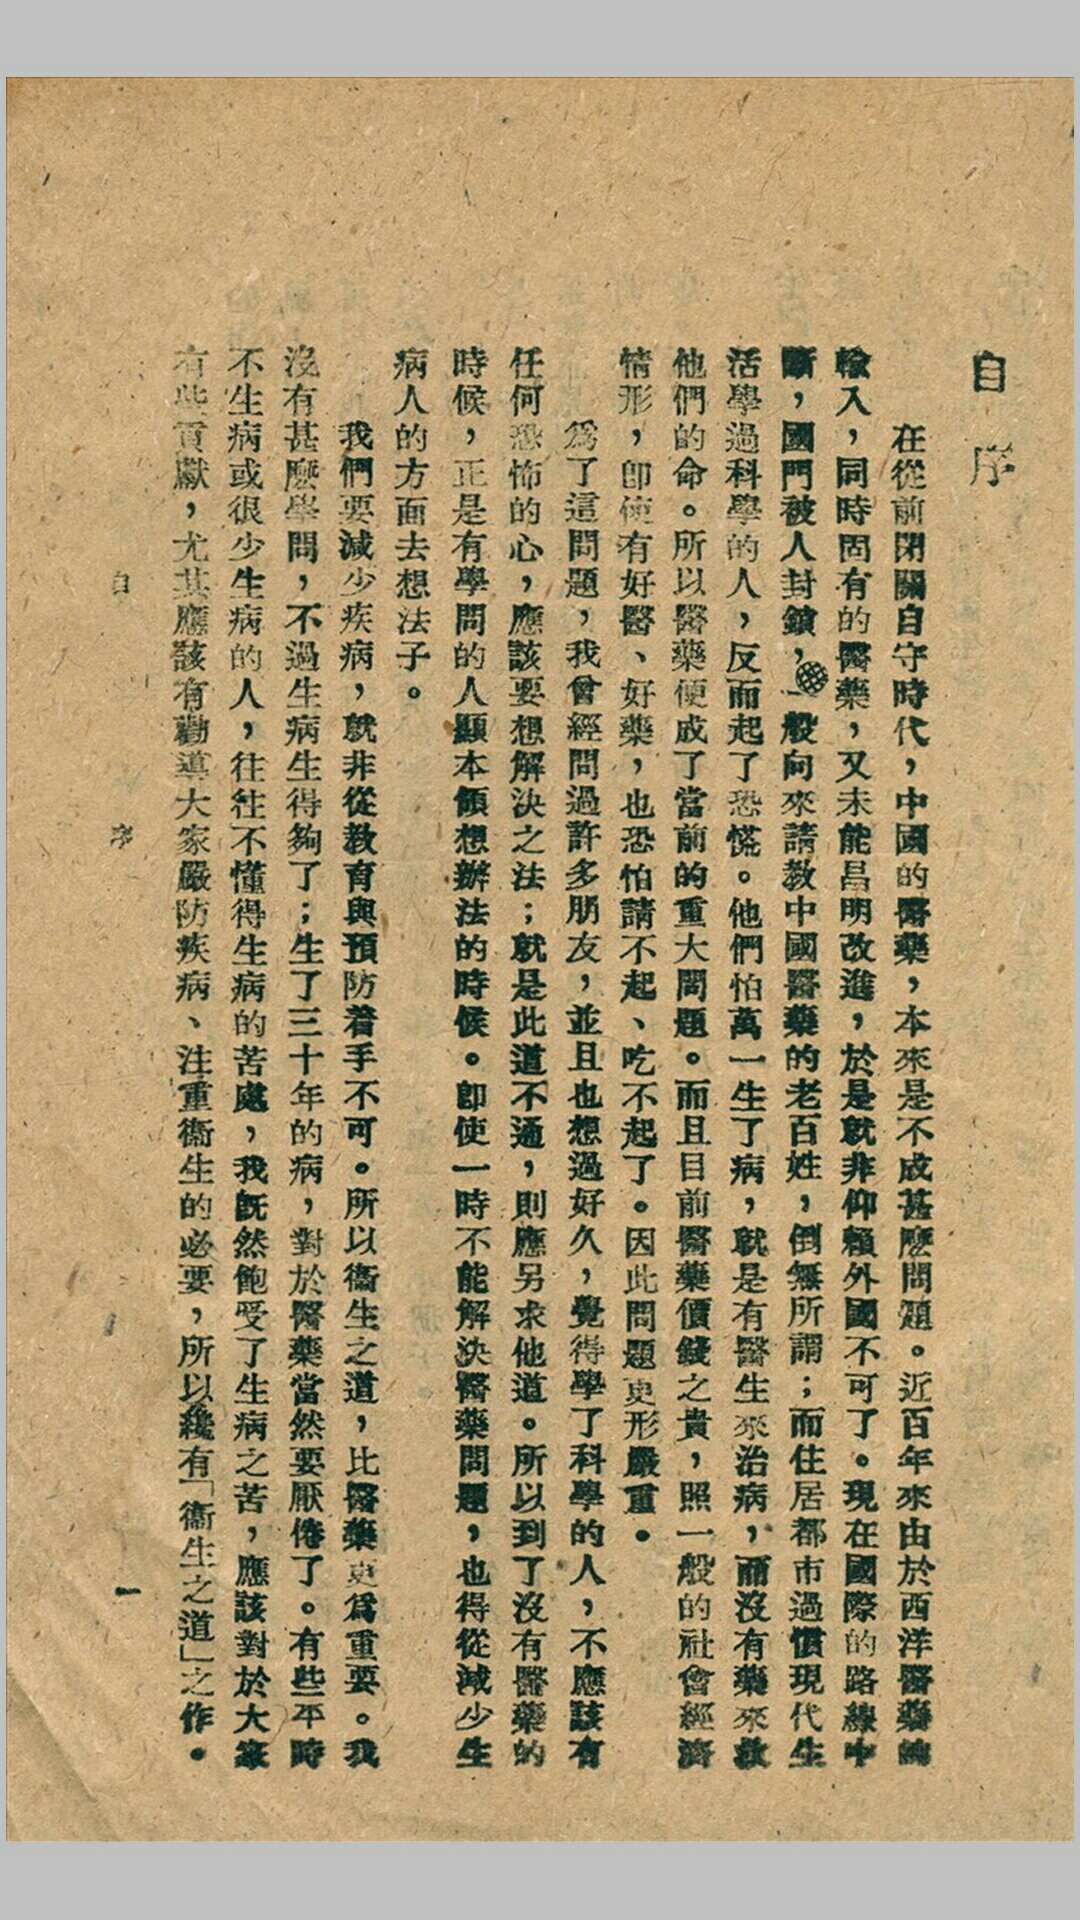 自序
在從前閉關自守時代，中國的醫藥，本來是不成甚麼問題。近百年來由於西洋醫藥的
輸入，同時固有的醫藥，又未能昌明改進，於是就非仰賴外國不可了。現在國際的路線中
斷，國門被人封鎖，一般向來請教中國醫藥的老百姓，倒無所謂；而住居都市過慣現代生
活學過科學的人，反而起了恐慌。他們怕萬一生了病，就是有醫生來治病，而沒有藥來救
他們的命。所以醫藥便成了當前的重大問題。而且目前醫藥價錢之貴，照一般的社會經濟
情形，卽使有好醫、好藥，也恐怕請不起、吃不起了。因此問題更形嚴重。
爲了這問題，我曾經問過許多朋友，並且也想過好久，覺得學了科學的人，不應該有
任何恐怖的心，應該要想解決之法；就是此道不通，則應另求他道。所以到了沒有醫藥的
時候，正是有學問的人顯本領想辦法的時候。卽使一時不能解決醫藥問題，也得從減少生
病人的方面去想法子。
我們要減少疾病，就非從教育與預防着手不可。所以衞生之道，比醫藥更爲重要。我
沒有甚麼學問，不過生病生得夠了；生了三十年的病，對於醫藥當然要厭倦了。有些平時
不生病或很少生病的人，往往不懂得生病的苦處，我旣然飽受了生病之苦，應該對於大家
有些貢獻，尤其應該有勸導大家嚴防疾病、注重衞生的必要，所以纔有「衞生之道」之作。
自序 一